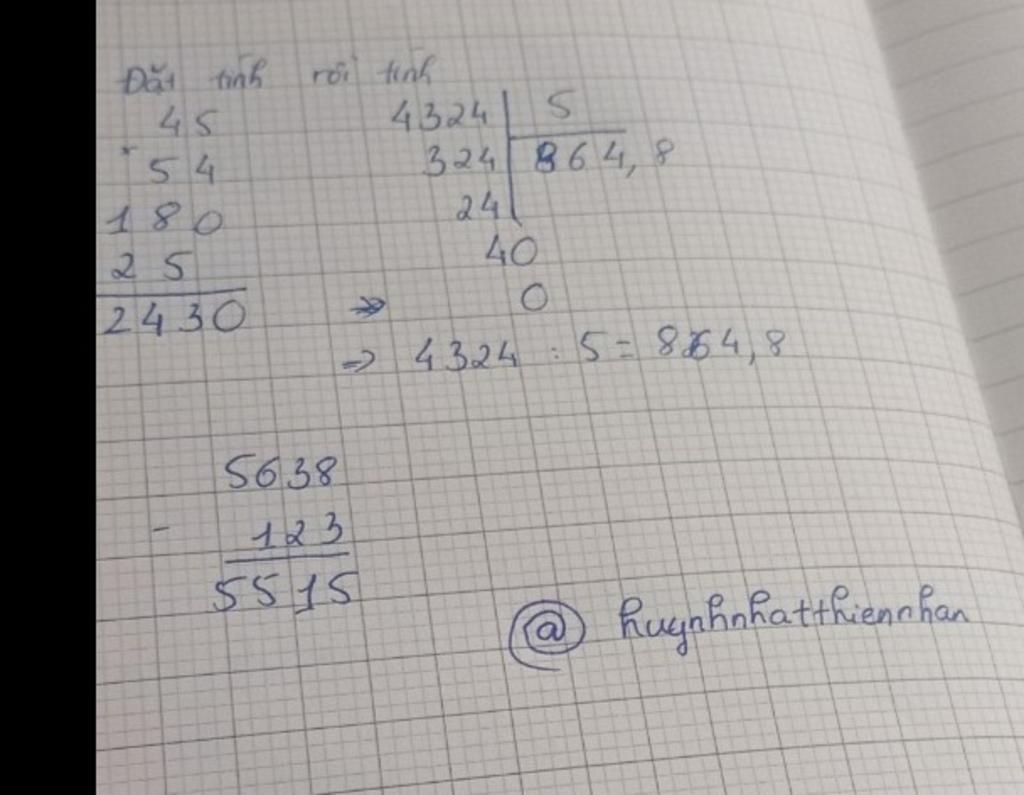 Đặt tính rồi tính
45
× 54
180
25
2430
4324 5
324 864,8
24
40
0
⇒
⇒ 4324 : 5 = 864,8
5638
- 123
5515
@ huynhnhatthiennhan